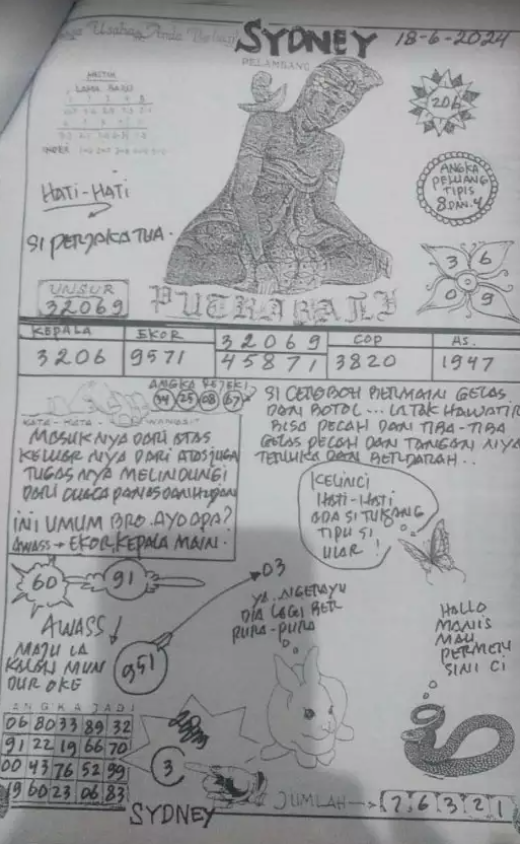 SYDNEY 18-6-2024
PELAMBANG
LAMA BARU
206
HATI-HATI
SI PERJAKA TUA.
ANGKA
PELUANG
TIPIS
8 DAN 4
3 6
0 9
UNSUR
32069
PUTRARAJH
KEPALA EKOR 32069 COP AS.
3206 9571 45871 3820 1947
ANGKA REJEKI
94 25 08 67
KATA - KATA -
MASUK NYA DARI ATAS
KELUAR NYA DARI ATAS JUGA
TUGAS NYA MELINDUNGI
DARI CUACA PANAS DAN HUJAN
INI UMUM BRO. AYO APA?
AWASS → EKOR, KEPALA MAIN.
SI CEROBOH BERMAIN GELAS
DAN BOTOL... TAK HAWATIR
BISA PECAH DAN TIBA-TIBA
GELAS PECAH DAN TANGAN NIYA
TERLUKA DAN BERDARAH..
KELINCI
HATI-HATI
ADA SI TUKANG
TIPU SI
ULAR!
60
91
03
YA. NGERAYU
DIA LAGI BER
PURA-PURA
AWASS!
MAJU LA
KALAU MUN
DUR OKE
951
HALLO
MANIS
MAU
PERMEN
SINI CI
ANGKA JADI
06 80 33 89 32
91 22 19 66 70
00 43 76 52 99
19 60 23 06 83
3
SYDNEY
JUMLAH → 7 6 3 2 1